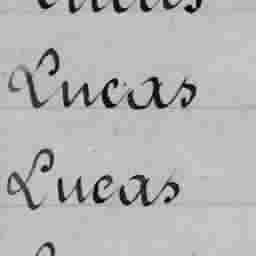 Lucas
Lucas